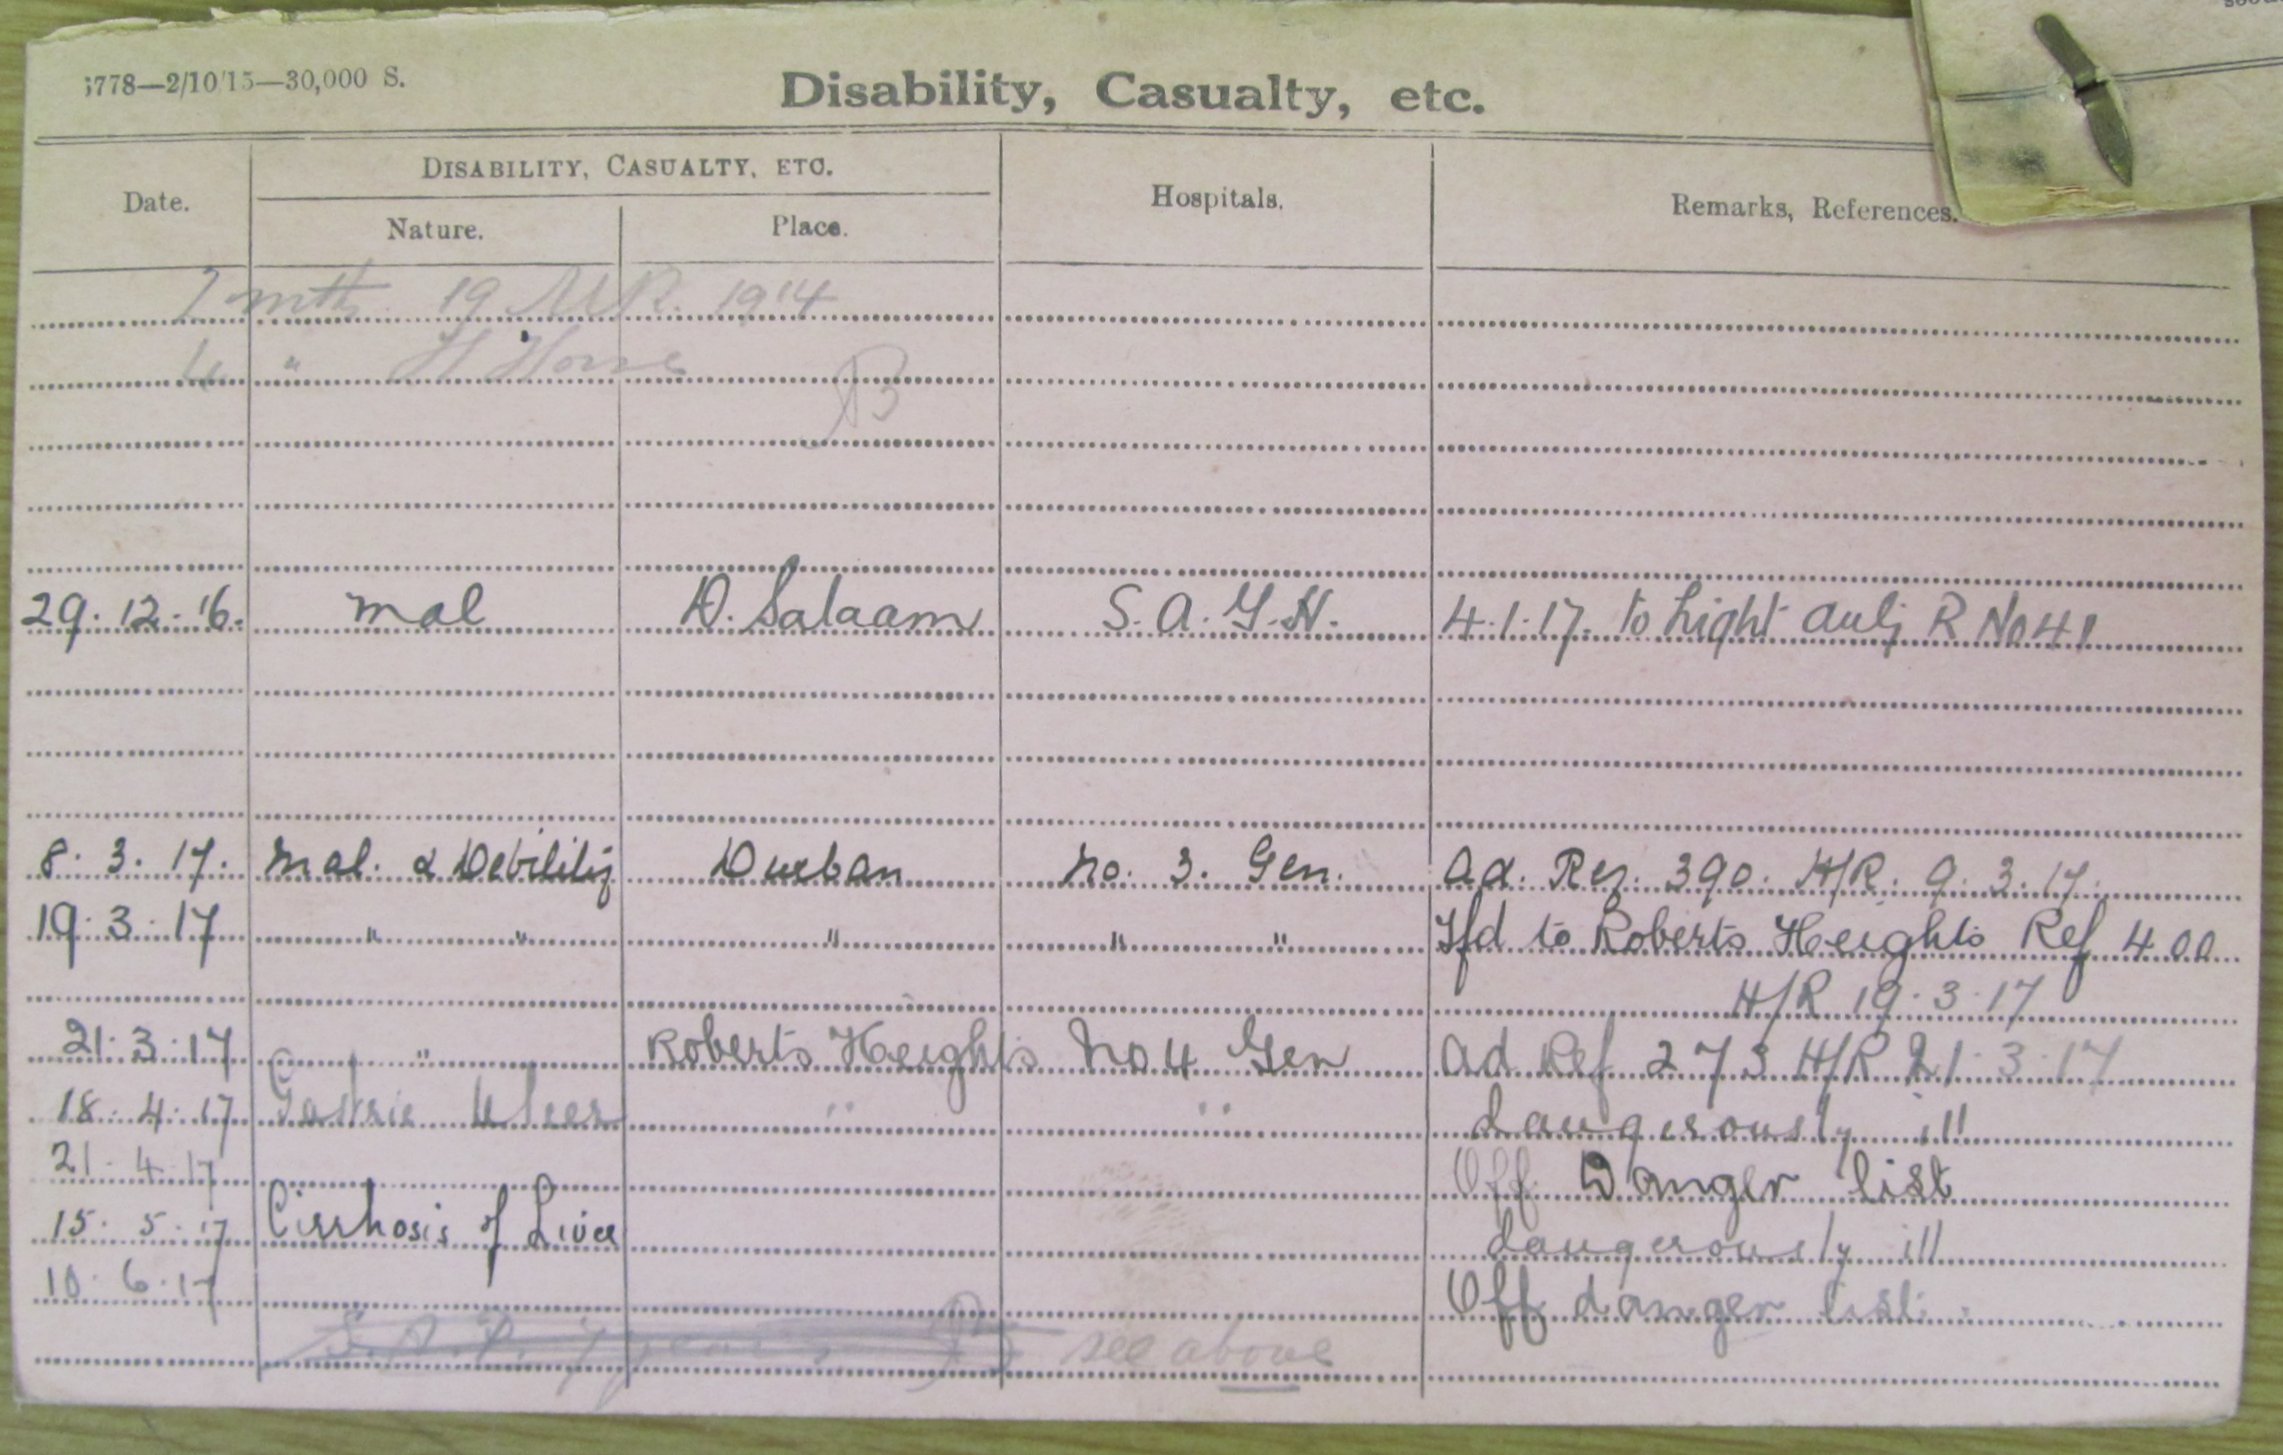 778—2/10/15—30,000 S.
Disability, Casualty, etc.
Date. DISABILITY, CASUALTY, ETC. Hospitals. Remarks, References.
Nature. Place.
mth 19 1914
" H Horse
29.12.16. Mal D. Salaam S.A.G.H. 4.1.17. to Light R No 41
8.3.17. Mal. & Debility Durban No. 3. Gen. Ad. 390. H/R. 9.3.17.
19.3.17 " " " " " Tfd to Roberts Heights Ref 400
H/R 19.3.17
21.3.17 " Roberts Heights No 4 Gen Ad Ref 273 H/R 21.3.17
18.4.17 Gastric Ulcer " " dangerously ill
21.4.17 Off Danger list
15.5.17 Cirrhosis of Liver dangerously ill
10.6.17 Off danger list.
see above